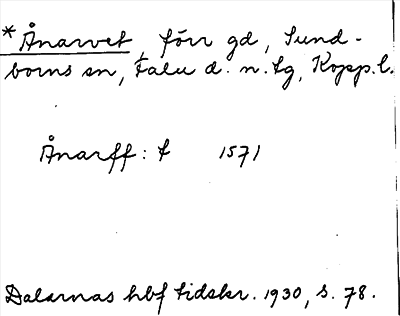 * Ånarvet, förr gd, Sund-
borns sn, Falu d. n. tg, Kopp. l.
Ånarff: t 1571
Dalarnas hbf tidskr. 1930, s. 78.